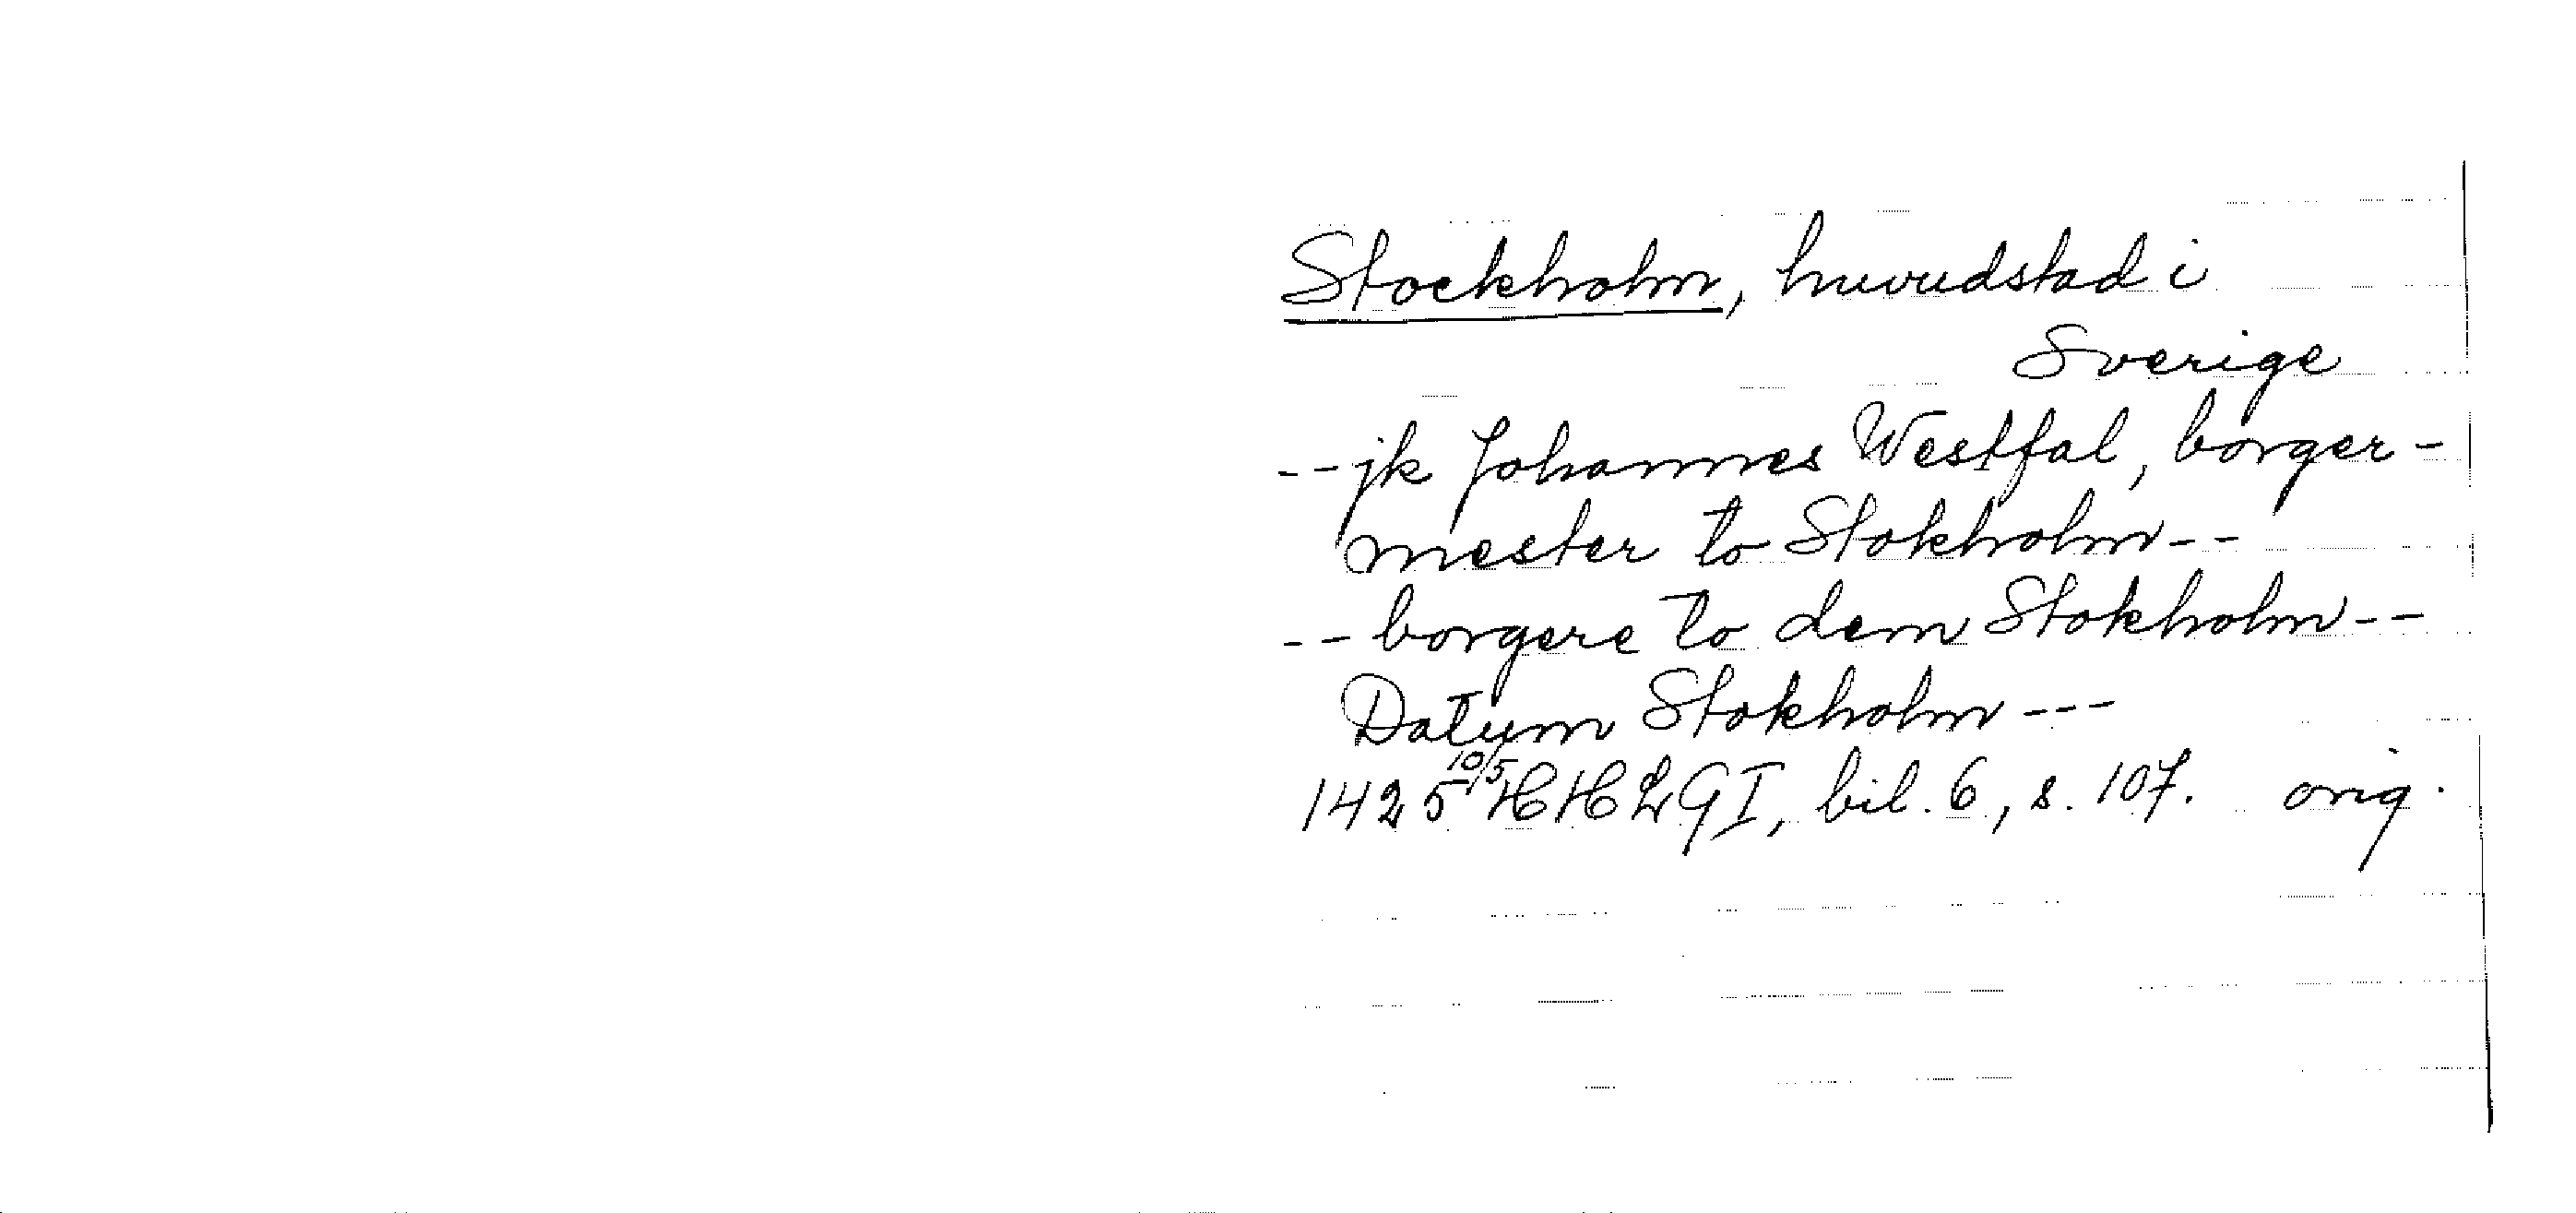 Stockholm, huvudstad i
Sverige
-- jk Johannes Westfal, borger-
mester to Stokholm --
-- borgere to dem Stokholm --
Datum Stokholm ---
1425 10/5 HHLGI, bil. 6, s. 107. orig.